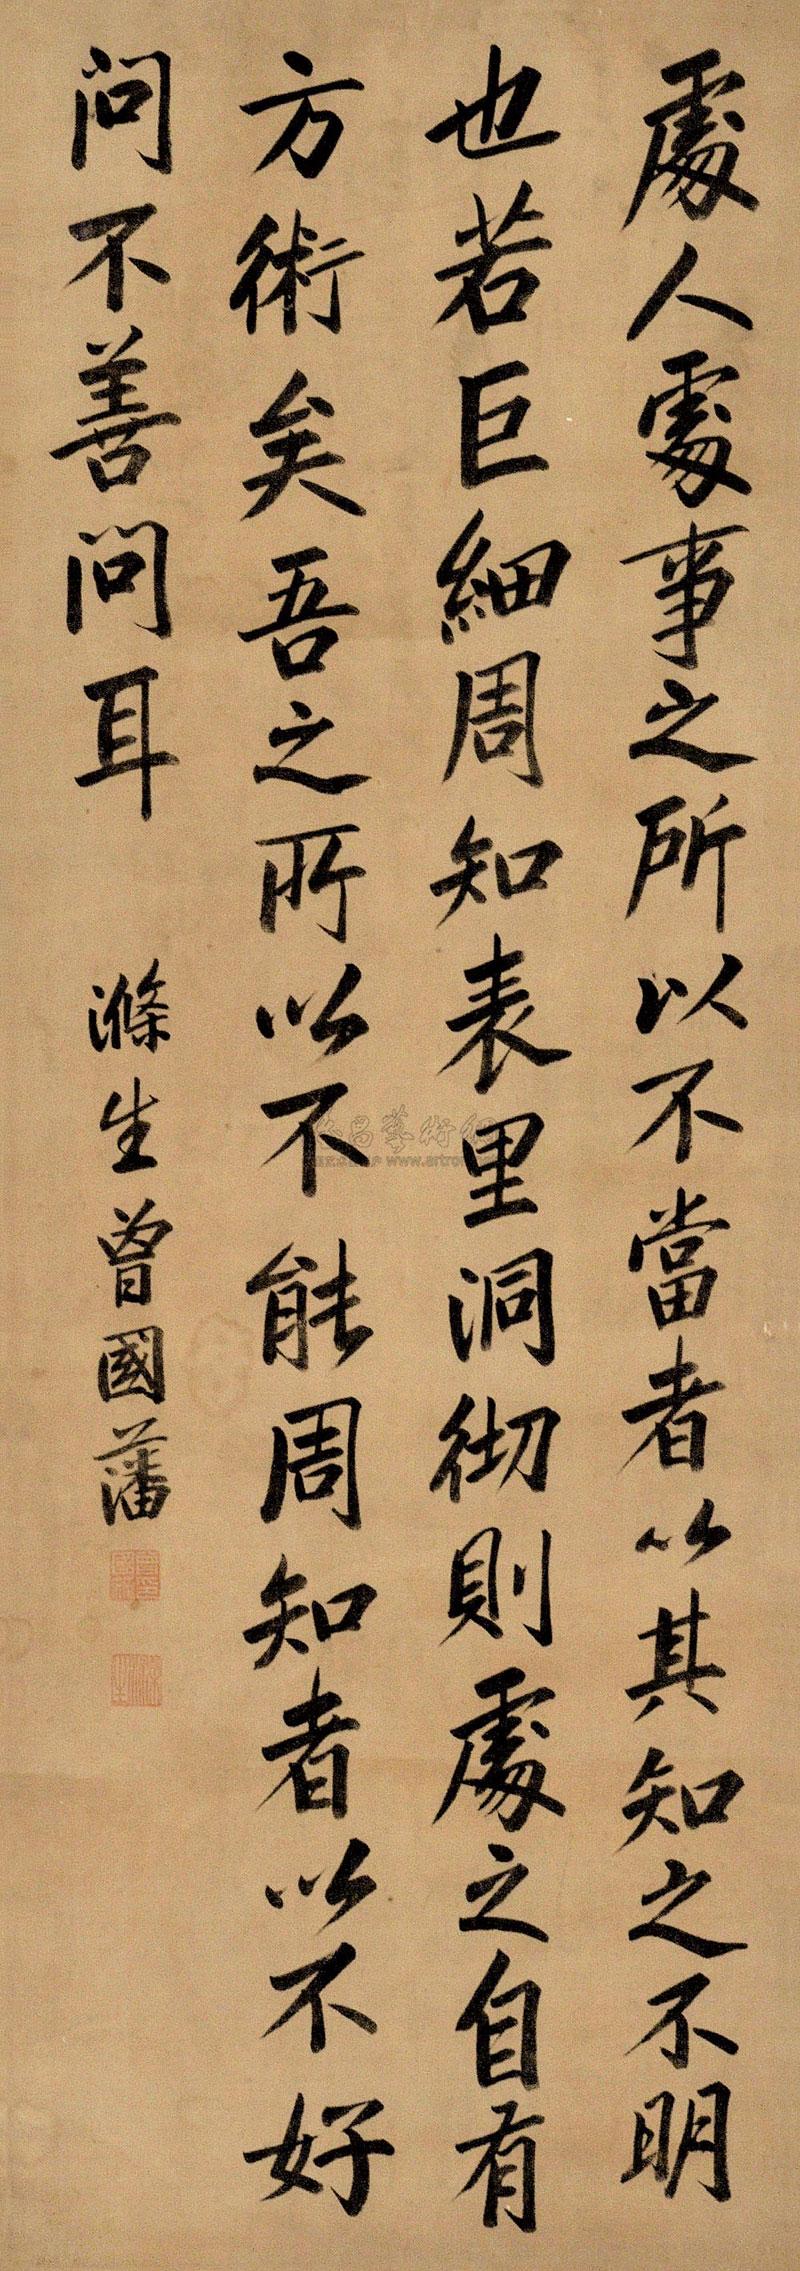 處人處事之所以不當者以其知之不明
也若巨細周知表里洞彻則處之自有
方術矣吾之所以不能周知者以不好
問不善問耳
滌生曾國藩